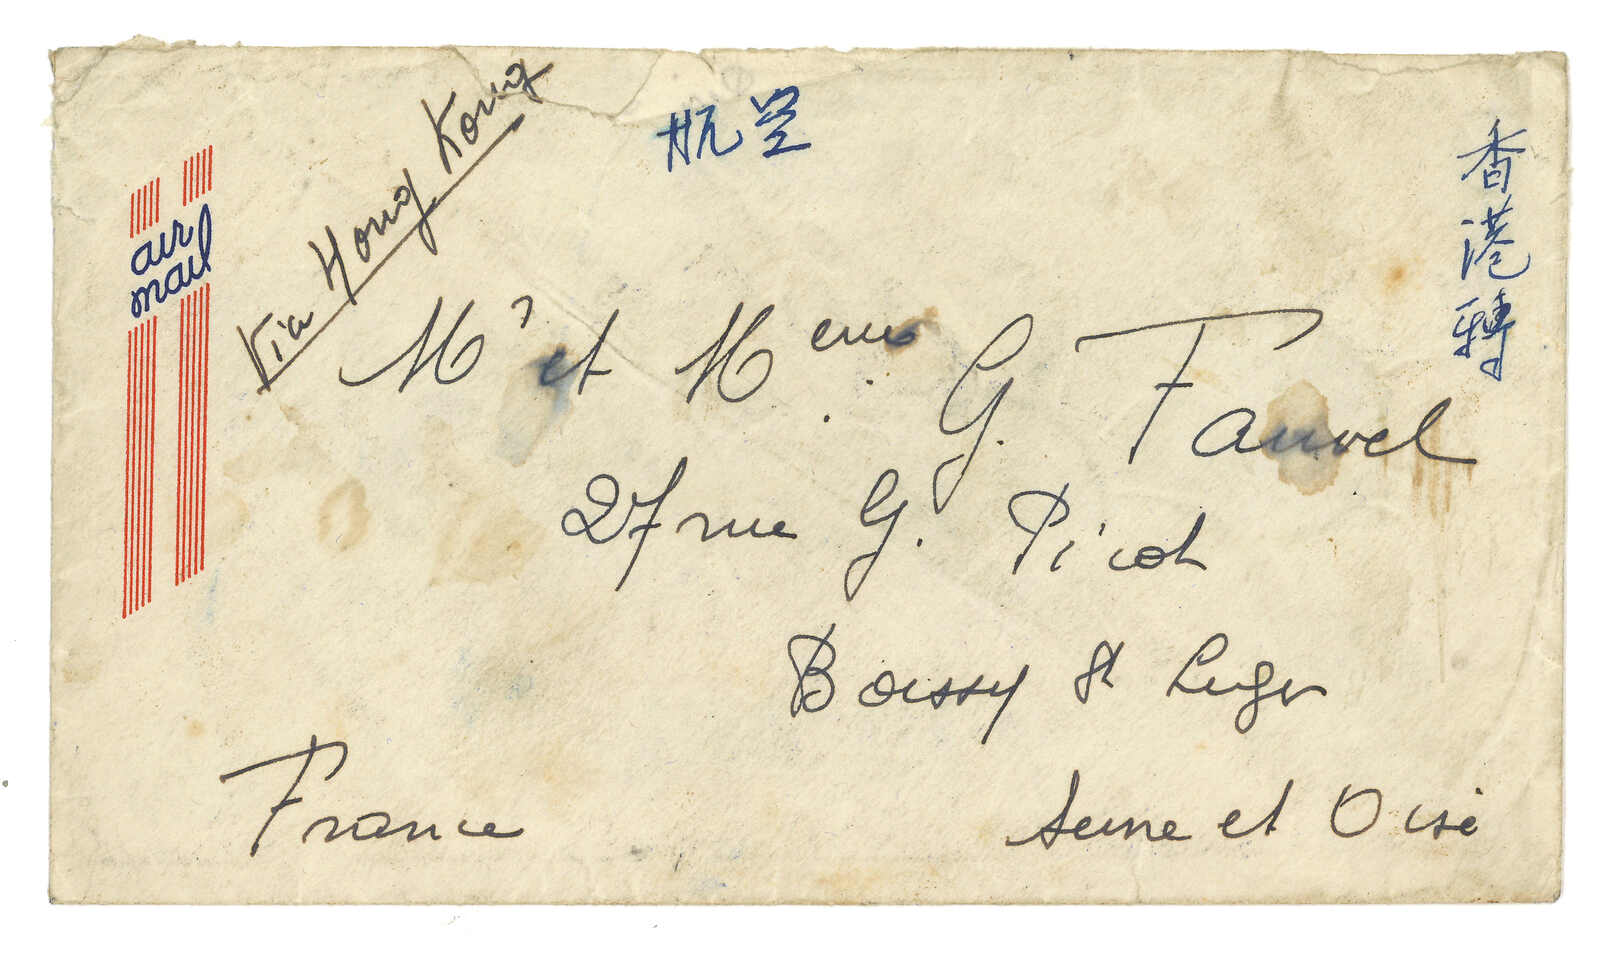 Via Hong Kong
航空
香港轉
air
mail
Mr et Mme G. Fauvel
27 rue G. Picot
Boissy St Leger
Seine et Oise
France